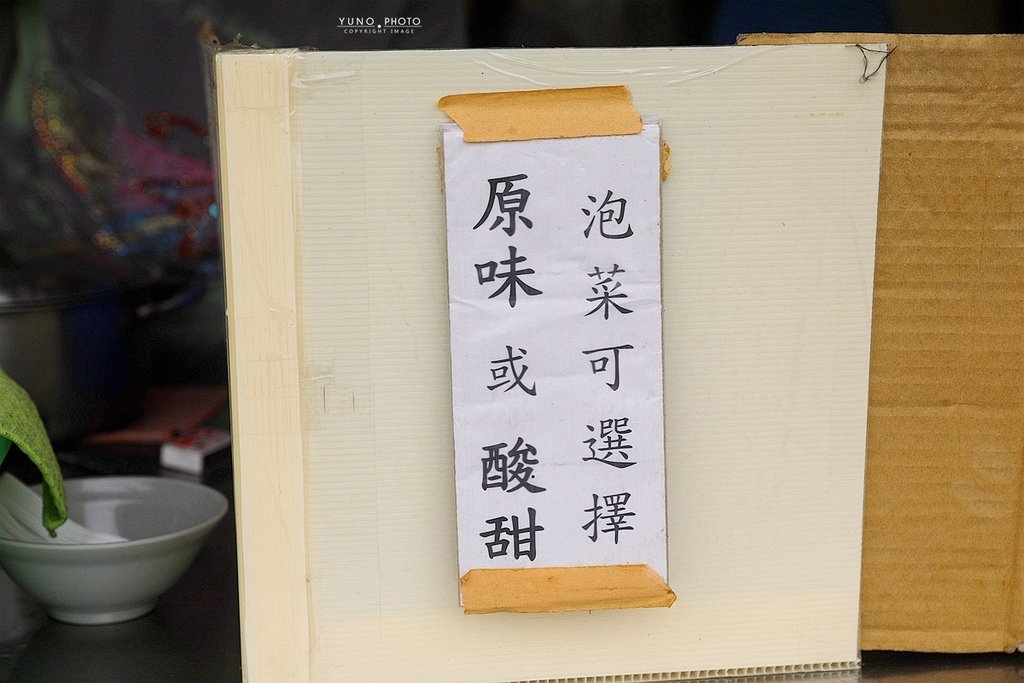 YUNO PHOTO
COPYRIGHT IMAGE
泡菜可選擇
原味或酸甜